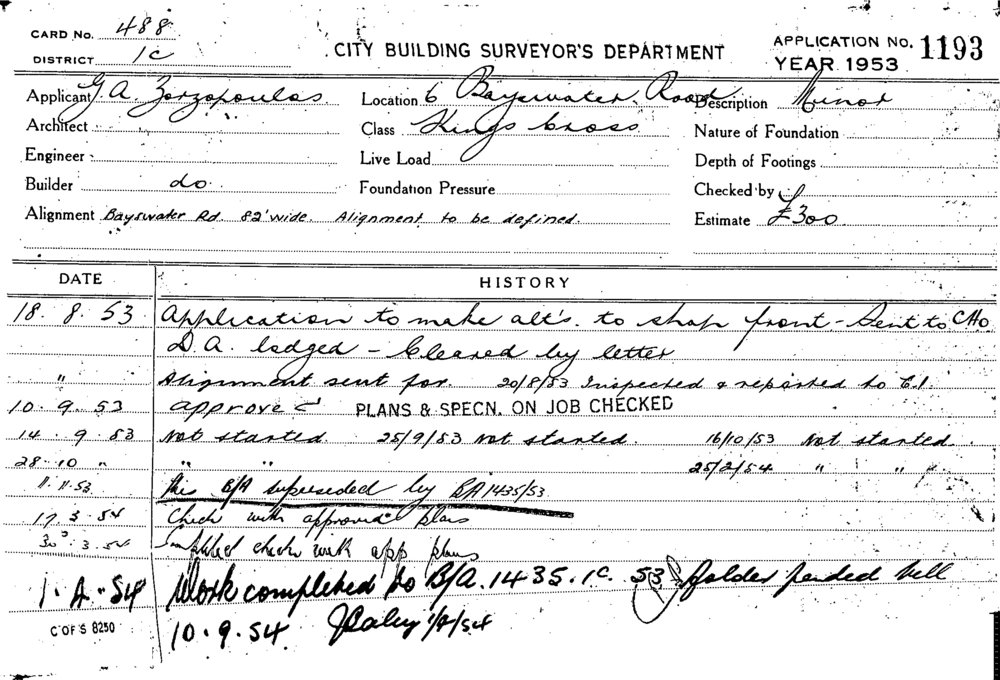 CARD No. 488
DISTRICT 1C
CITY BUILDING SURVEYOR'S DEPARTMENT
APPLICATION No. 1193
YEAR 1953
Applicant G. A. Zorzopoulos Location 6 Bayswater Road Description Minor
Architect Class Kings Cross Nature of Foundation
Engineer Live Load Depth of Footings
Builder do. Foundation Pressure Checked by
Alignment Bayswater Rd. 82' wide. Alignment to be defined. Estimate £300
DATE HISTORY
18. 8. 53 Application to make alt's. to shop front - Sent to CHO.
D.A. lodged - Cleared by letter
" Alignment sent for. 20/8/53 Inspected & reported to C.I.
10. 9. 53 approved PLANS & SPECN. ON JOB CHECKED
14. 9. 53 Not started. 25/9/53 not started. 16/10/53 Not started.
28-10 " " " 25/2/54 " "
11.11.53 This B/A superseded by BA 1435/53
17 3 54 Check with approved plans
30.3.54 check with app plans
1. 4. 54 Work completed to B/A. 1435. 1C. 53 folder pended till
10.9.54. 1/4/54
C OF S 8250